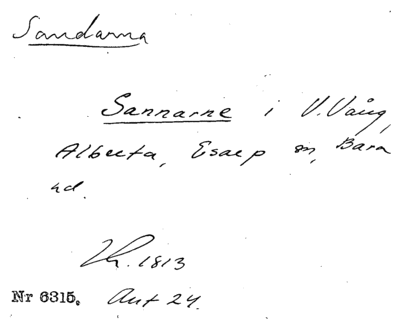 Sandarna
Sannarne i V. Vång,
Alberta, Esarp sn, Bara
hd.
1813
Nr 6315. Ant 24.